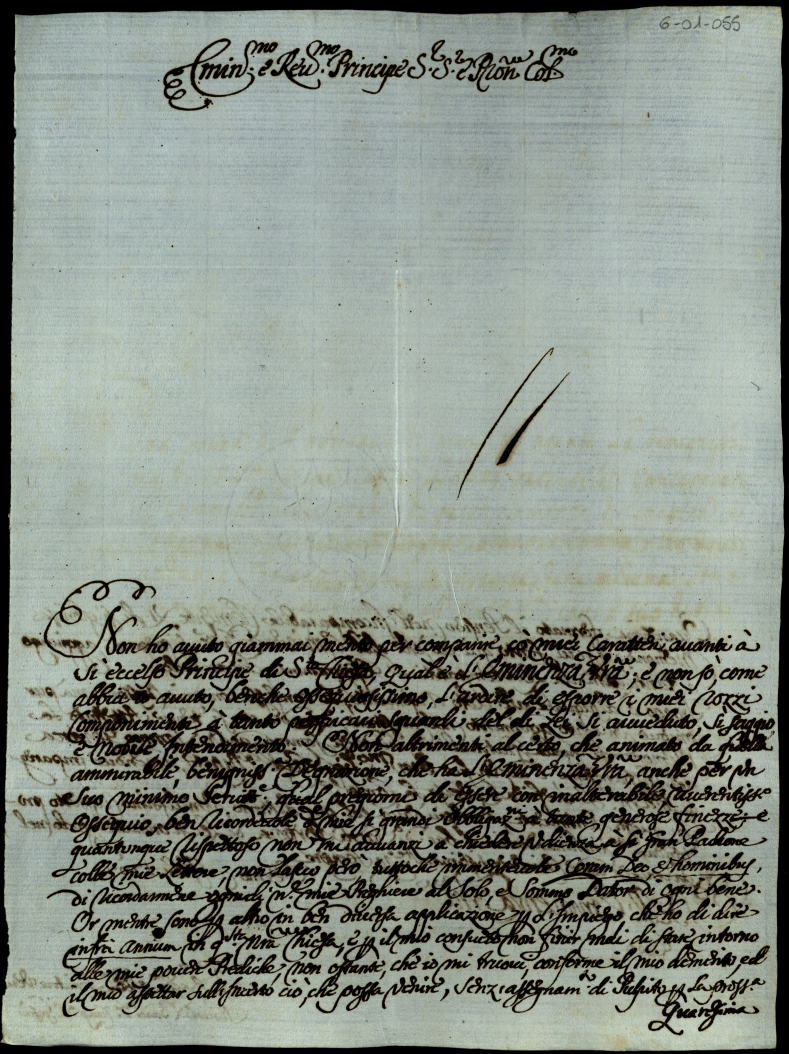 6-01-055
Emin.mo e Reu.mo Principe S.r S.r e Pron Col.mo
Non ho auuto giammai merito per comparire, co' miei Caratteri, auanti à
si eccelso Principe di S.ta Chiesa, qual è l'Eminenza Vrã; e non sò, come
abbia auuto, benche ossequiosissimo, l'ardire di esporre i miei rozzi
Componimenti à tanto perspicaci sguardi del di Lei si auueduto, si saggio
e Nobile Intendimento. Non altrimenti al certo, che animato da quella
ammirabile, benigniss.a Degnazione, che ha l'Eminenza Vrã, anche per un
suo minimo Seruit.e, qual pregiomi di essere con inalterabile, riuerentiss.o
Ossequio, ben ricordeuole si grandi obbligaz.ni à tante generose finezze: e
quantunque rispettoso non mi auuanzi à chiedere udienza à si gran Padrone
colle mie lettere, non lascio però, tuttoche immeriteuole Coram Deo, et hominibus,
di ricordarmene nelle mie Preghiere al Solo, e Sommo Dator di ogni bene.
Or mentre sono in ben diuersa applicazione p l'Impiego, che ho di dire
infra Annum in q.sta Nrã Chiesa, e p il mio consueto non finir mai di stare intorno
alle mie pouere Prediche, non ostante, che io mi truoui, conforme il mio demerito, ed
il mio aspettar sull'incerto ciò, che possa venire, senz'assegnam.to di Pulpito p La pross.a
Quaresima